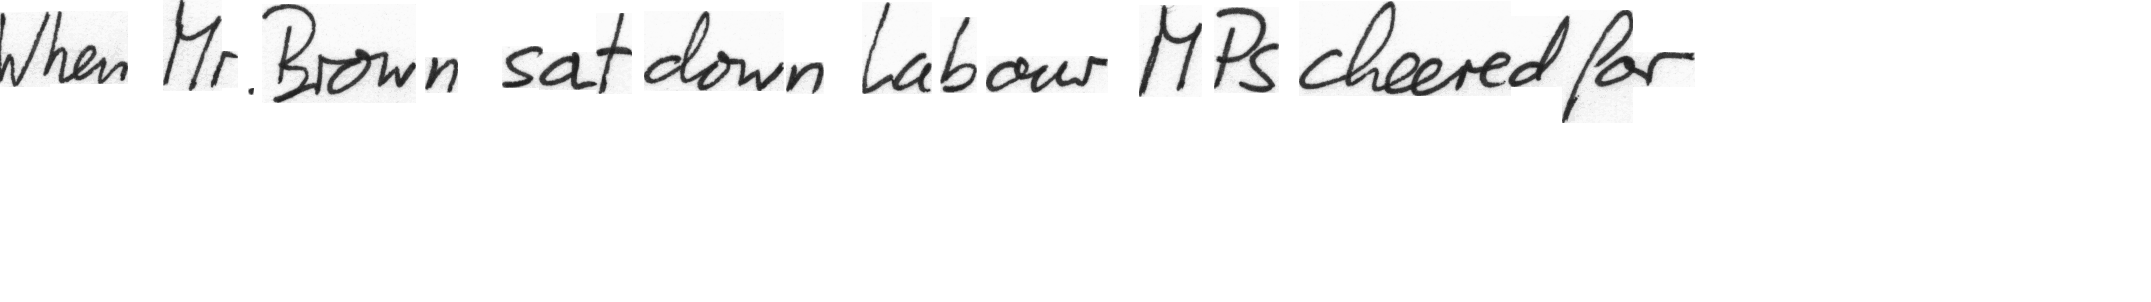 When Mr. Brown sat down Labour MPs cheered for